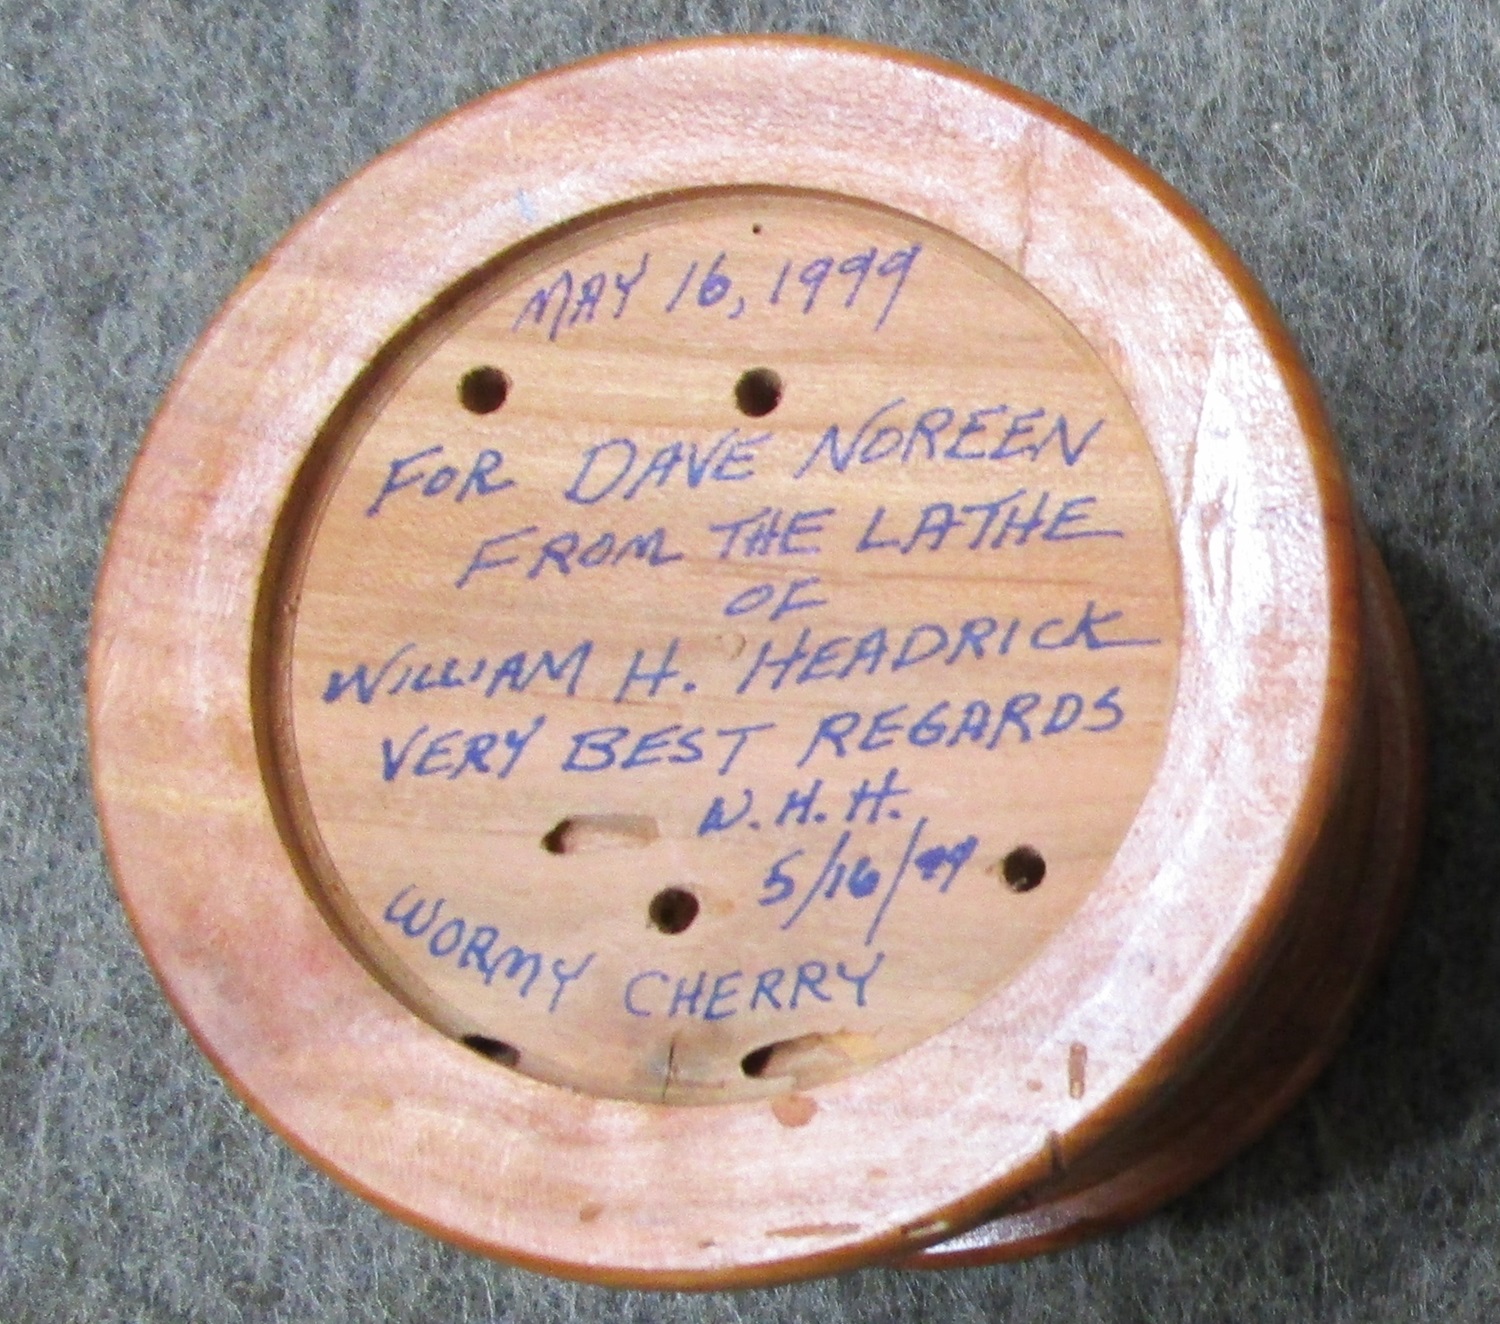 MAY 16, 1999
FOR DAVE NOREEN
FROM THE LATHE
OF
WILLIAM H. HEADRICK
VERY BEST REGARDS
W. H. H.
5/16/99
WORMY CHERRY